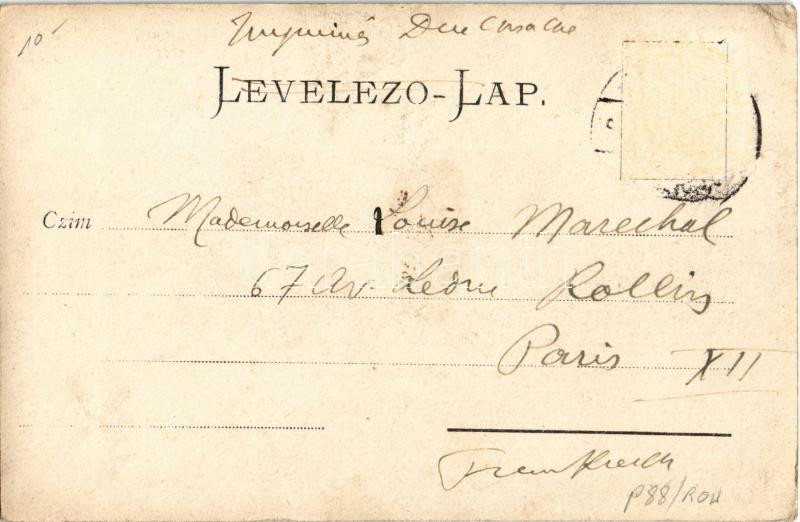 10
LEVELEZO-LAP.
Czim Mademoiselle Louise Marechal
67 Av. Ledru Rollin
Paris XII
Frankreich
P88/ROU